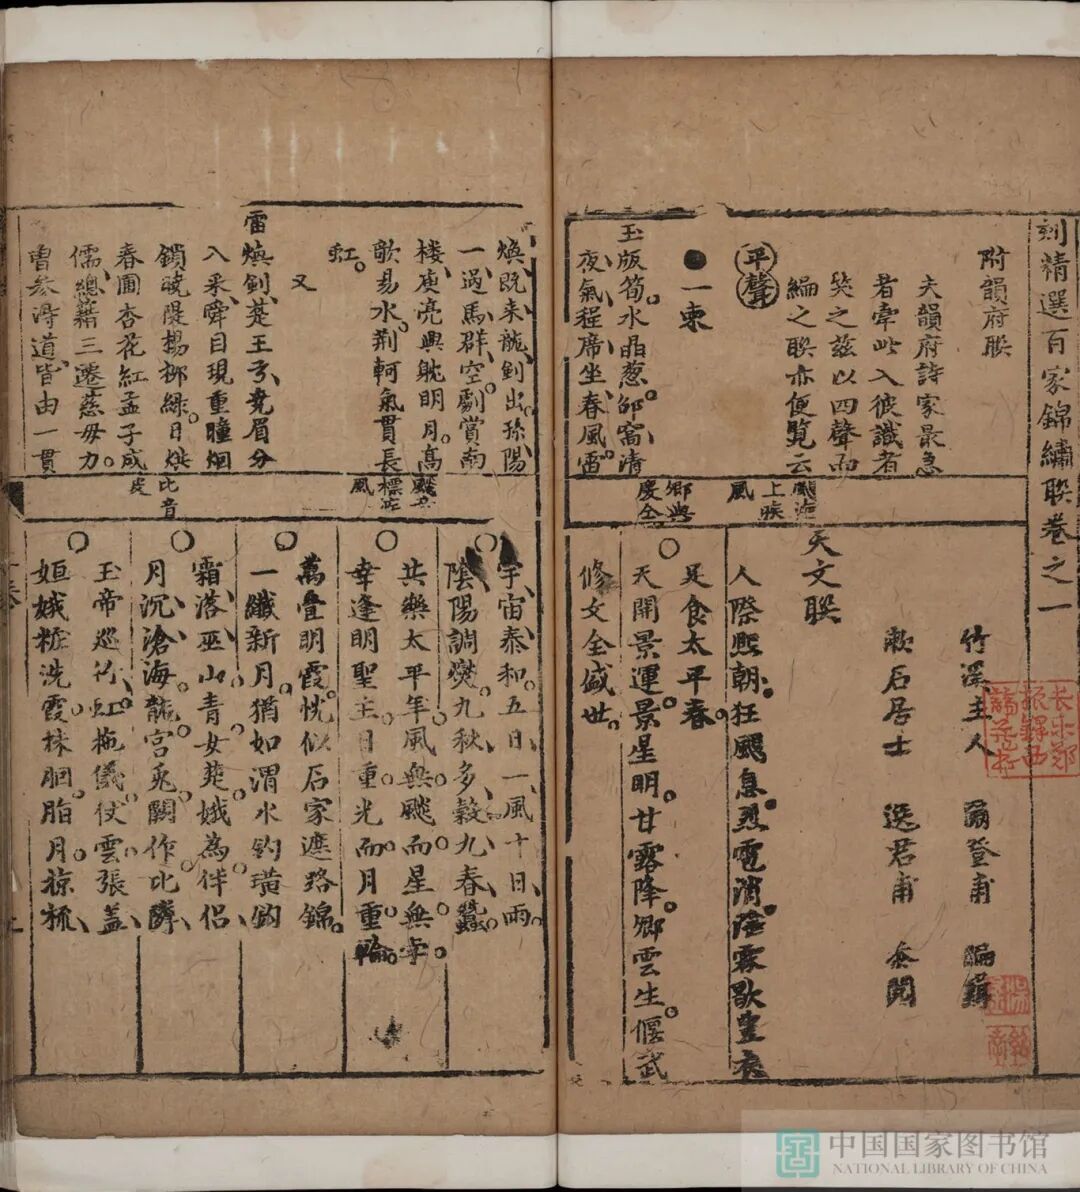 刻精選百家錦繡聯卷之一
附韻府聯
夫韻府詩家最急
者牽此入彼識者
笑之茲以四聲而
編之聯亦便覽云
平聲
一東
玉版筍水晶葱邵窩清
夜氣程席坐春風雷
上
風
卿與
慶仝
竹溪主人 爾登甫 編輯
漱石居士 逸君甫 叅閱
天文聯
人際熙朝狂颶息烈電消陰霖歇豐衣
足食太平春
天開景運景星明甘露降卿雲生偃武
修文全盛世
煥既来龍劍出孫陽
一過馬群空劇賞南
楼庾亮興躭明月高
歌易水荆軻氣貫長
虹
又
雷煥劍楚王弓堯眉分
八采舜目現重瞳烟
鎖曉隄楊柳綠日烘
春圃杏花紅孟子成
儒總籍三遷慈毋力
曽參淂道皆由一貫
風
比音
宇宙泰和五日一風十日雨
陰陽調燮九秋多穀九春蠶
共樂太平年風無颷而星無孛
幸逢明聖主日重光而月重輪
萬叠明霞恍似石家遮路錦
一纖新月猶如渭水钓璜鈎
霜落巫山青女楚娥為伴侣
月沉滄海龍宮兎闕作比隣
玉帝廵行虹拖儀仗雲張盖
姮娥粧洗霞抹胭脂月掠梳
长乐郑
振铎西
谛藏书
中国国家图书馆
NATIONAL LIBRARY OF CHINA